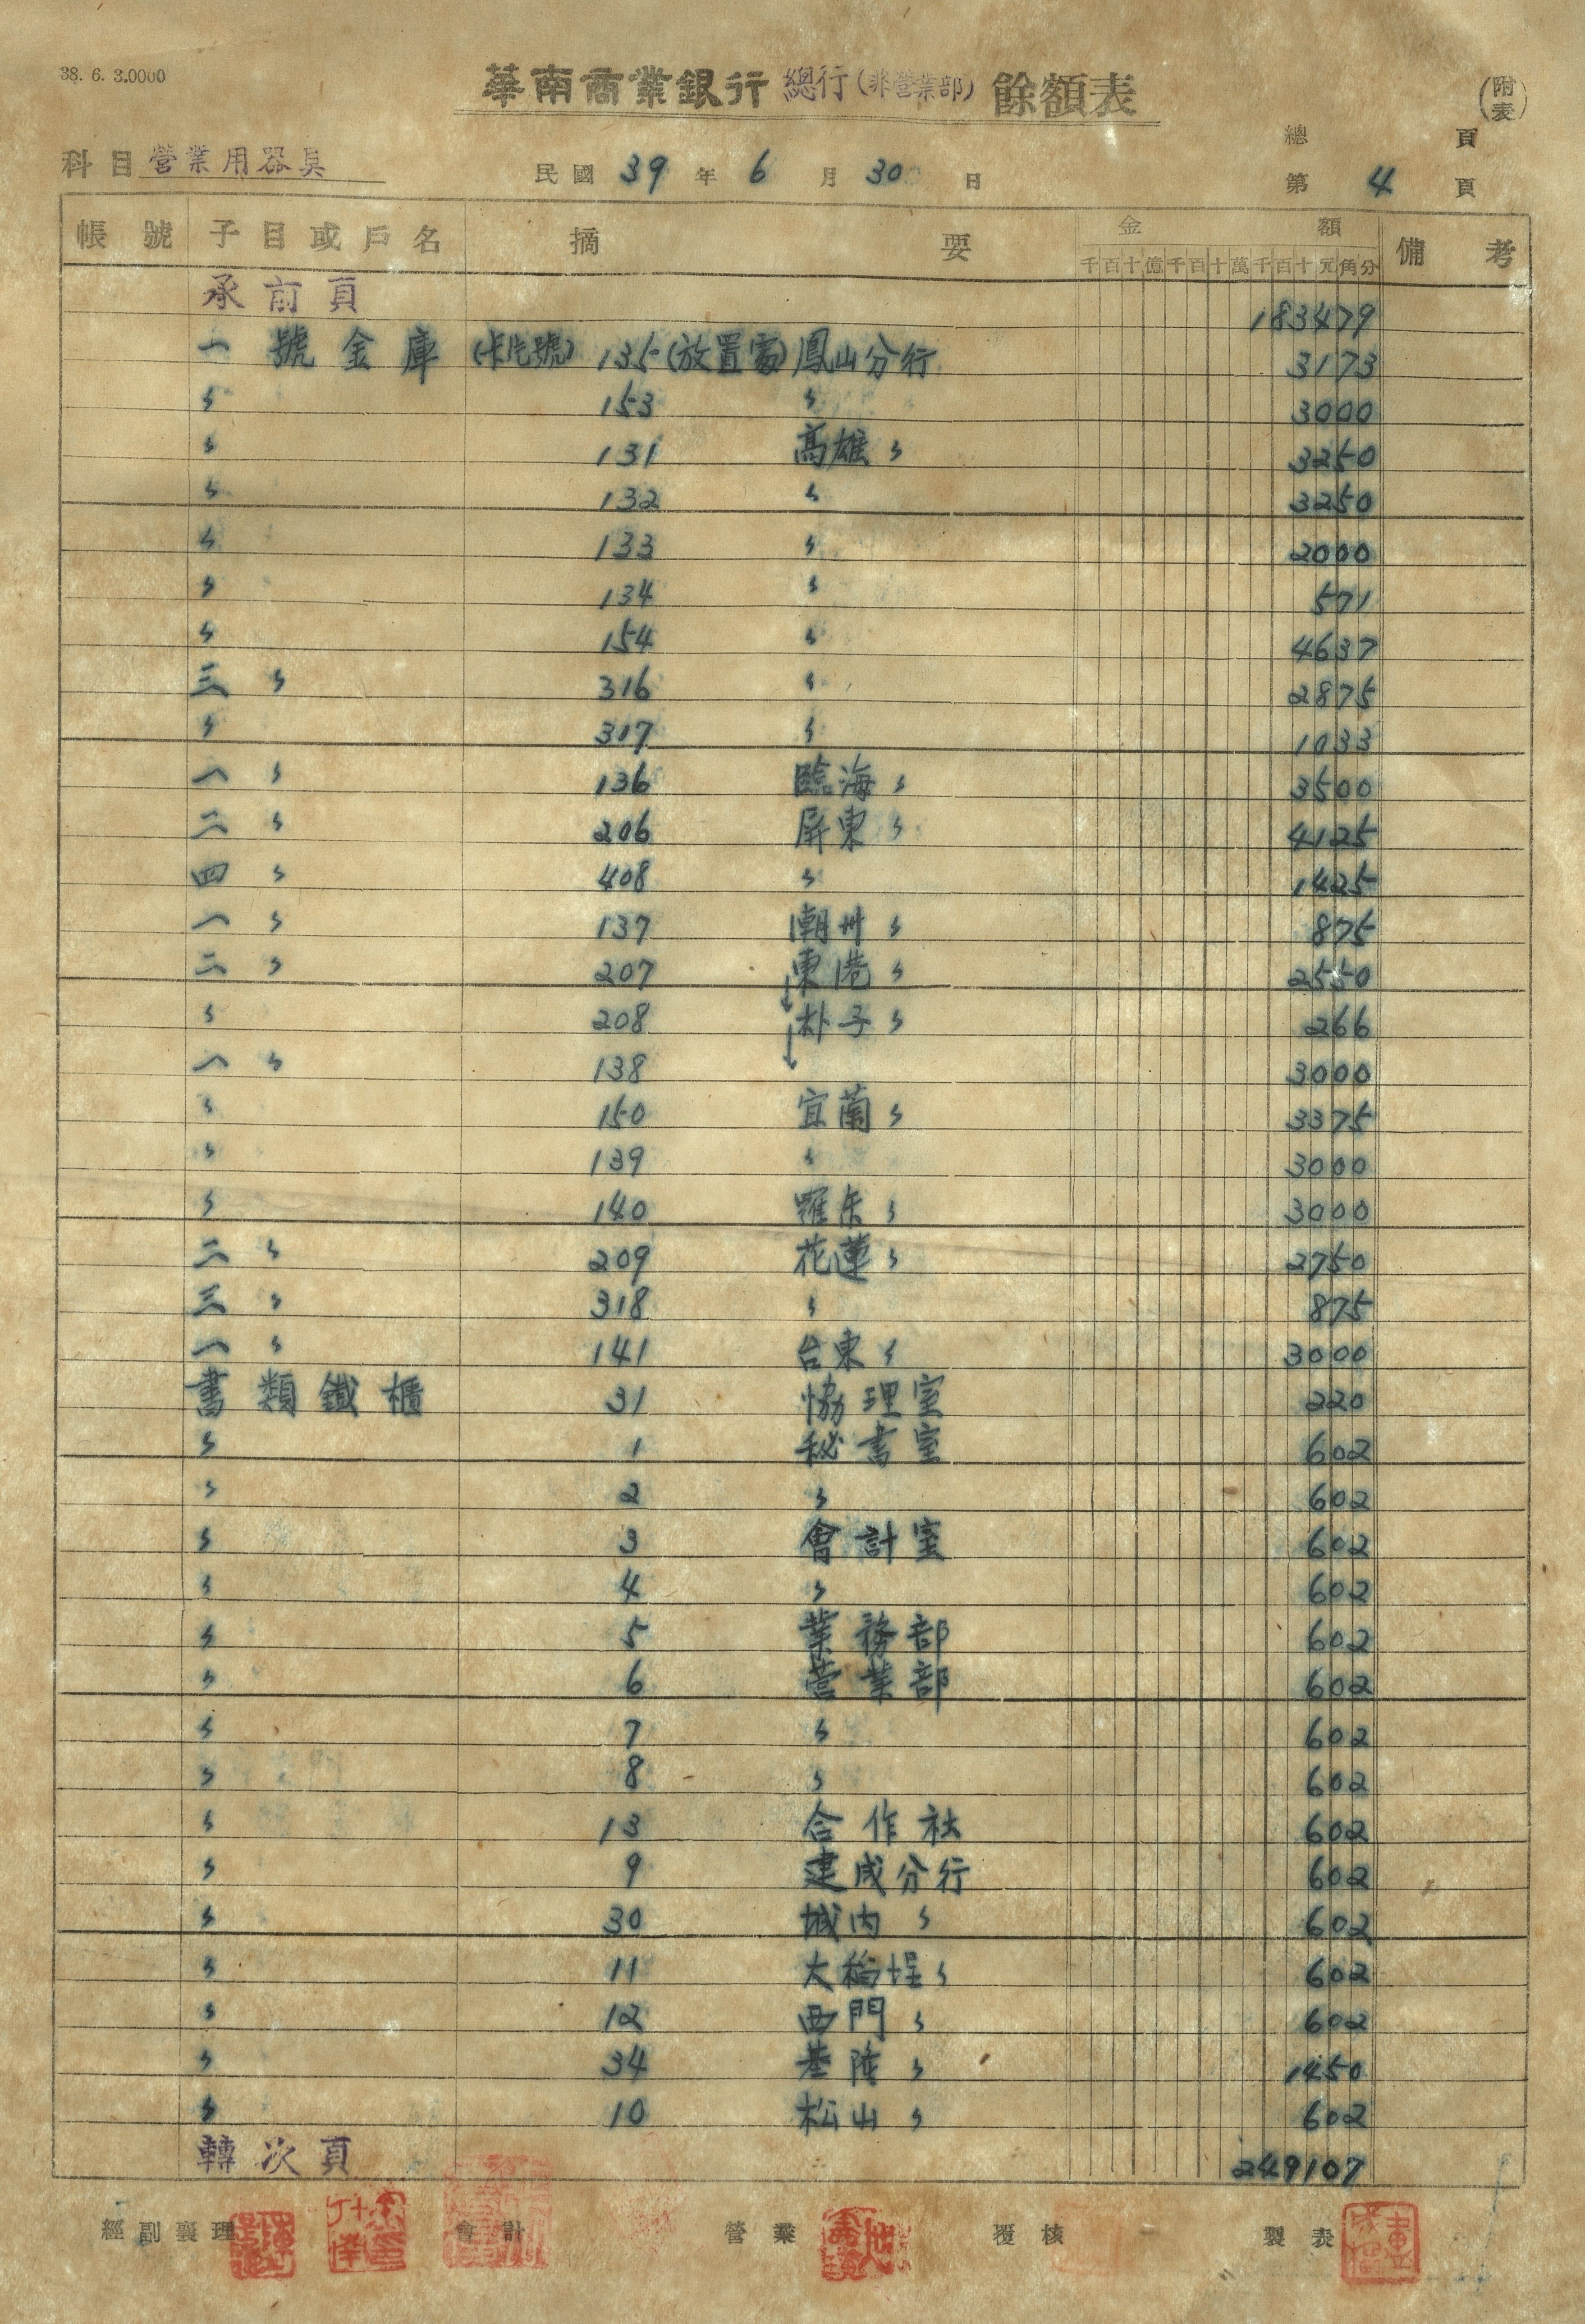 38. 6. 3.0000
華南商業銀行 總行(非營業部) 餘額表
(附表)
總 頁
科目 營業用器具 民國 39 年 6 月 30 日 第 4 頁
帳號 子目或戶名 摘要 金額 備考
千百十億千百十萬千百十元角分
承前頁 183479
一號金庫 (卡片號) 135 (放置處) 鳳山分行 3173
〃 153 〃 3000
〃 131 高雄〃 3250
〃 132 〃 3250
〃 133 〃 2000
〃 134 〃 571
〃 154 〃 4637
三〃 316 〃 2875
〃 317 〃 1033
一〃 136 臨海〃 3500
二〃 206 屏東〃 4125
四〃 408 〃 1425
一〃 137 潮州〃 875
二〃 207 東港〃 2550
〃 208 ↓朴子〃 266
一〃 138 ↓ 3000
〃 150 宜蘭〃 3375
〃 139 〃 3000
〃 140 羅东〃 3000
二〃 209 花蓮〃 2750
三〃 318 〃 875
一〃 141 台東〃 3000
書類鐵櫃 31 協理室 220
〃 1 秘書室 602
〃 2 〃 602
〃 3 會計室 602
〃 4 〃 602
〃 5 業務部 602
〃 6 营業部 602
〃 7 〃 602
〃 8 〃 602
〃 13 合作社 602
〃 9 建成分行 602
〃 30 城内〃 602
〃 11 大稻埕〃 602
〃 12 西門〃 602
〃 34 基隆〃 1450
〃 10 松山〃 602
轉次頁 249107
經副襄理 會計 營業 覆核 製表